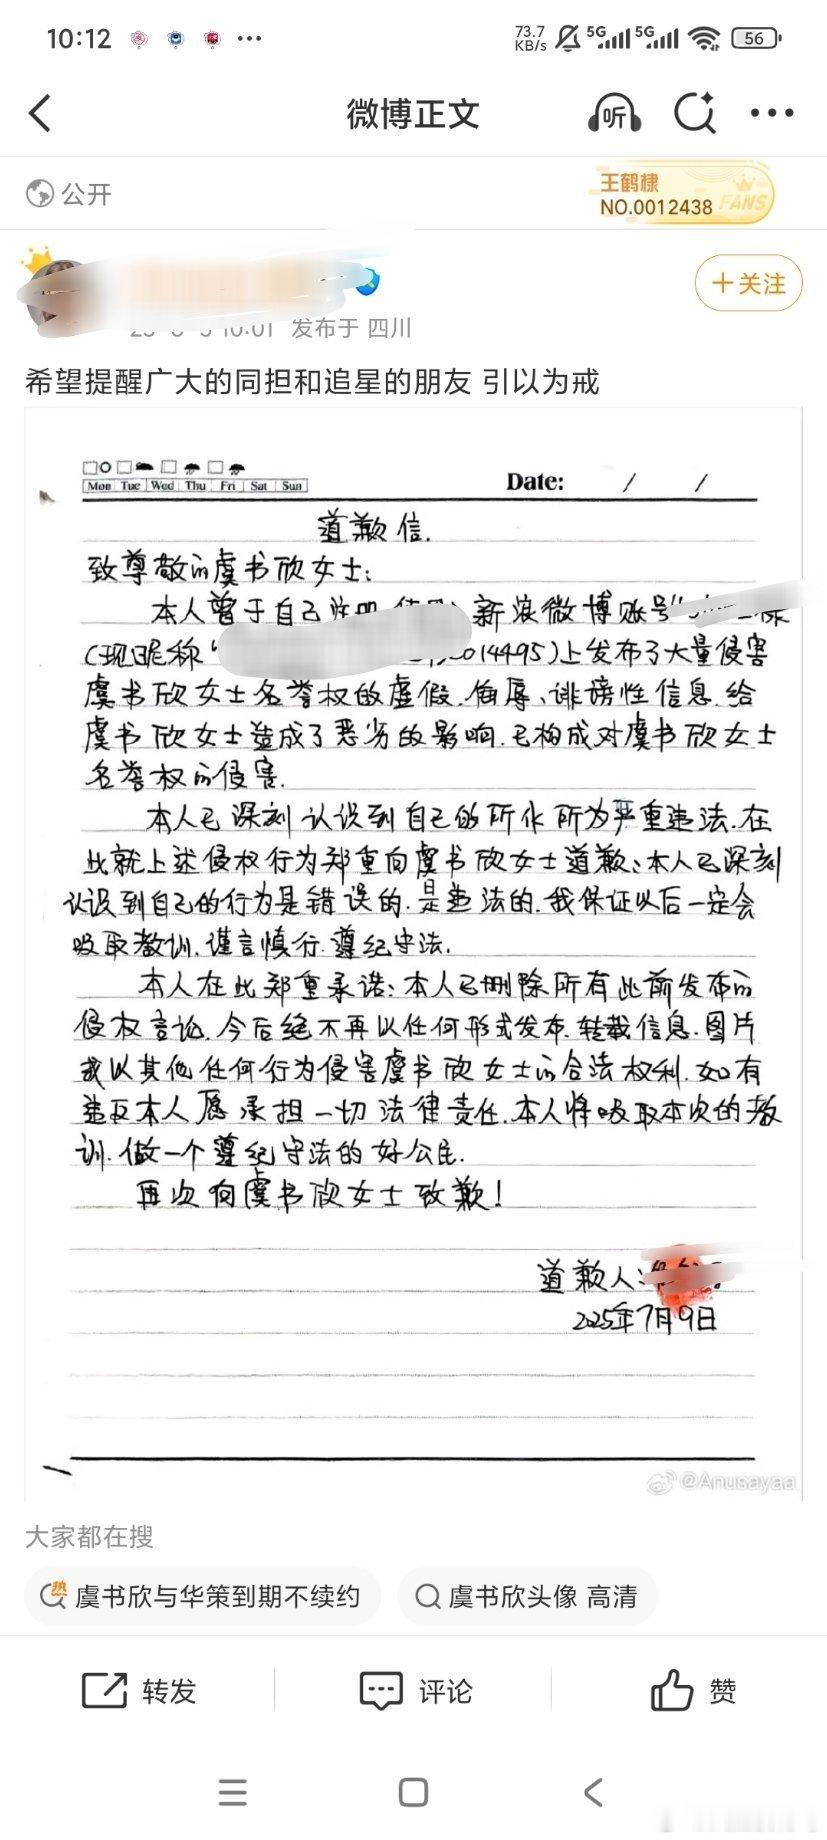 10:12
73.7
KB/s
5G
5G
56
微博正文
听
公开
王鹤棣
NO.0012438
FANS
+关注
10:01 发布于 四川
希望提醒广大的同担和追星的朋友 引以为戒
Mon Tue Wed Thu Fri Sat Sun
Date: / /
道歉信.
致尊敬的虞书欣女士:
本人曾于自己注册 新浪微博账号"
(现昵称" 014495)上发布了大量侵害
虞书欣女士名誉权的虚假、侮辱、诽谤性信息.给
虞书欣女士造成了恶劣的影响.已构成对虞书欣女士
名誉权的侵害.
本人已深刻认识到自己的所作所为严重违法.在
此就上述侵权行为郑重向虞书欣女士道歉:本人已深刻
认识到自己的行为是错误的.是违法的.我保证以后一定会
吸取教训.谨言慎行.遵纪守法.
本人在此郑重承诺:本人已删除所有此前发布的
侵权言论.今后绝不再以任何形式发布.转载信息.图片
或以其他任何行为侵害虞书欣女士的合法权利.如有
违反本人愿承担一切法律责任.本人将吸取本次的教
训.做一个遵纪守法的好公民.
再次向虞书欣女士致歉!
道歉人:
2025年7月9日
@Anusayaa
大家都在搜
热 虞书欣与华策到期不续约
虞书欣头像 高清
转发
评论
赞